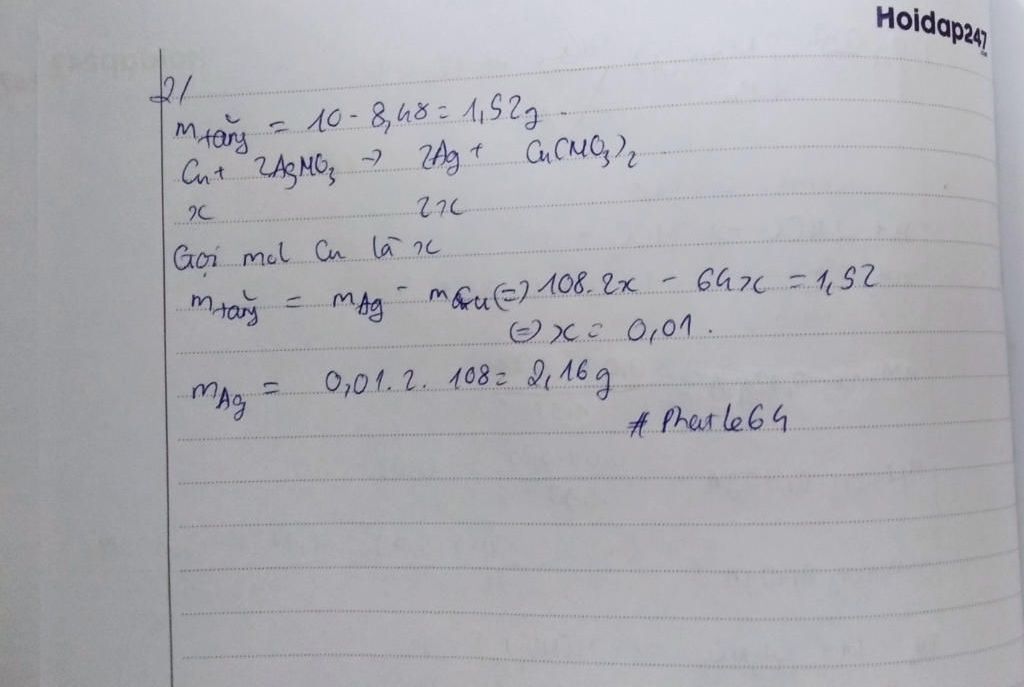 Hoidap247
2/
m tăng = 10 - 8,48 = 1,52g.
Cu + 2AgNO3 → 2Ag + Cu(NO3)2
x 2x
Gọi mol Cu là x
m tăng = mAg - mCu (=) 108.2x - 64x = 1,52
(=) x = 0,01.
mAg = 0,01.2.108 = 2,16g
# Phatle64